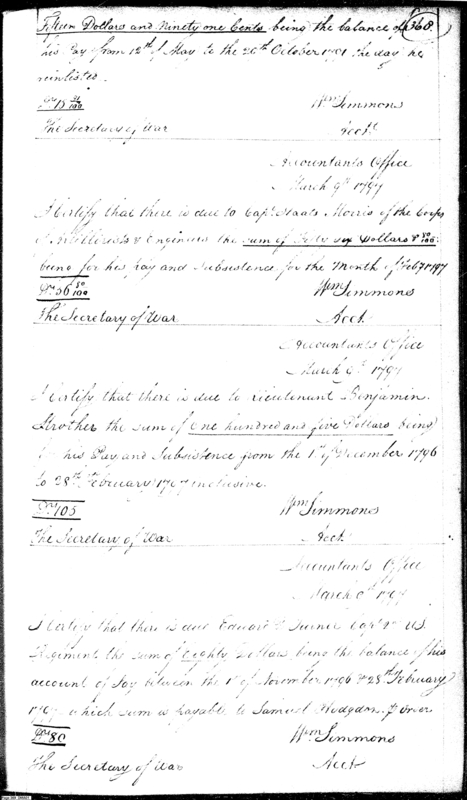 Fifteen Dollars and Ninety one Cents being the balance of 368.
his Pay from 12th of May to the 20th October 1791 the day he
reinlisted.
15 91/100 Wm Simmons
The Secretary of War Acct.
Accountants Office
March 9th 1797
I Certify that there is due to Capt. Staats Morris of the Corps
of Artillerists & Engineers the sum of Fifty six Dollars & 80/100.
being for his pay and Subsistence for the Month of Feby 1797
56 80/100 Wm Simmons
The Secretary of War Acct.
Accountants Office
March 1797
I Certify that there is due to Lieutenant Benjamin
Strother the sum of One hundred and five Dollars being
for his Pay and Subsistence from the 1st of December 1796
to 28th February 1797 inclusive.
105 Wm Simmons
The Secretary of War Acct.
Accountants Office
March 1797
I Certify that there is due Edward D Turner Capt 2nd U.S.
Regiment the sum of Eighty Dollars, being the balance of his
account of Pay between the 1st of November 1796 & 28th February
1797 which sum is payable to Samuel Hodgdon,
80 Wm Simmons
The Secretary of War Acct.